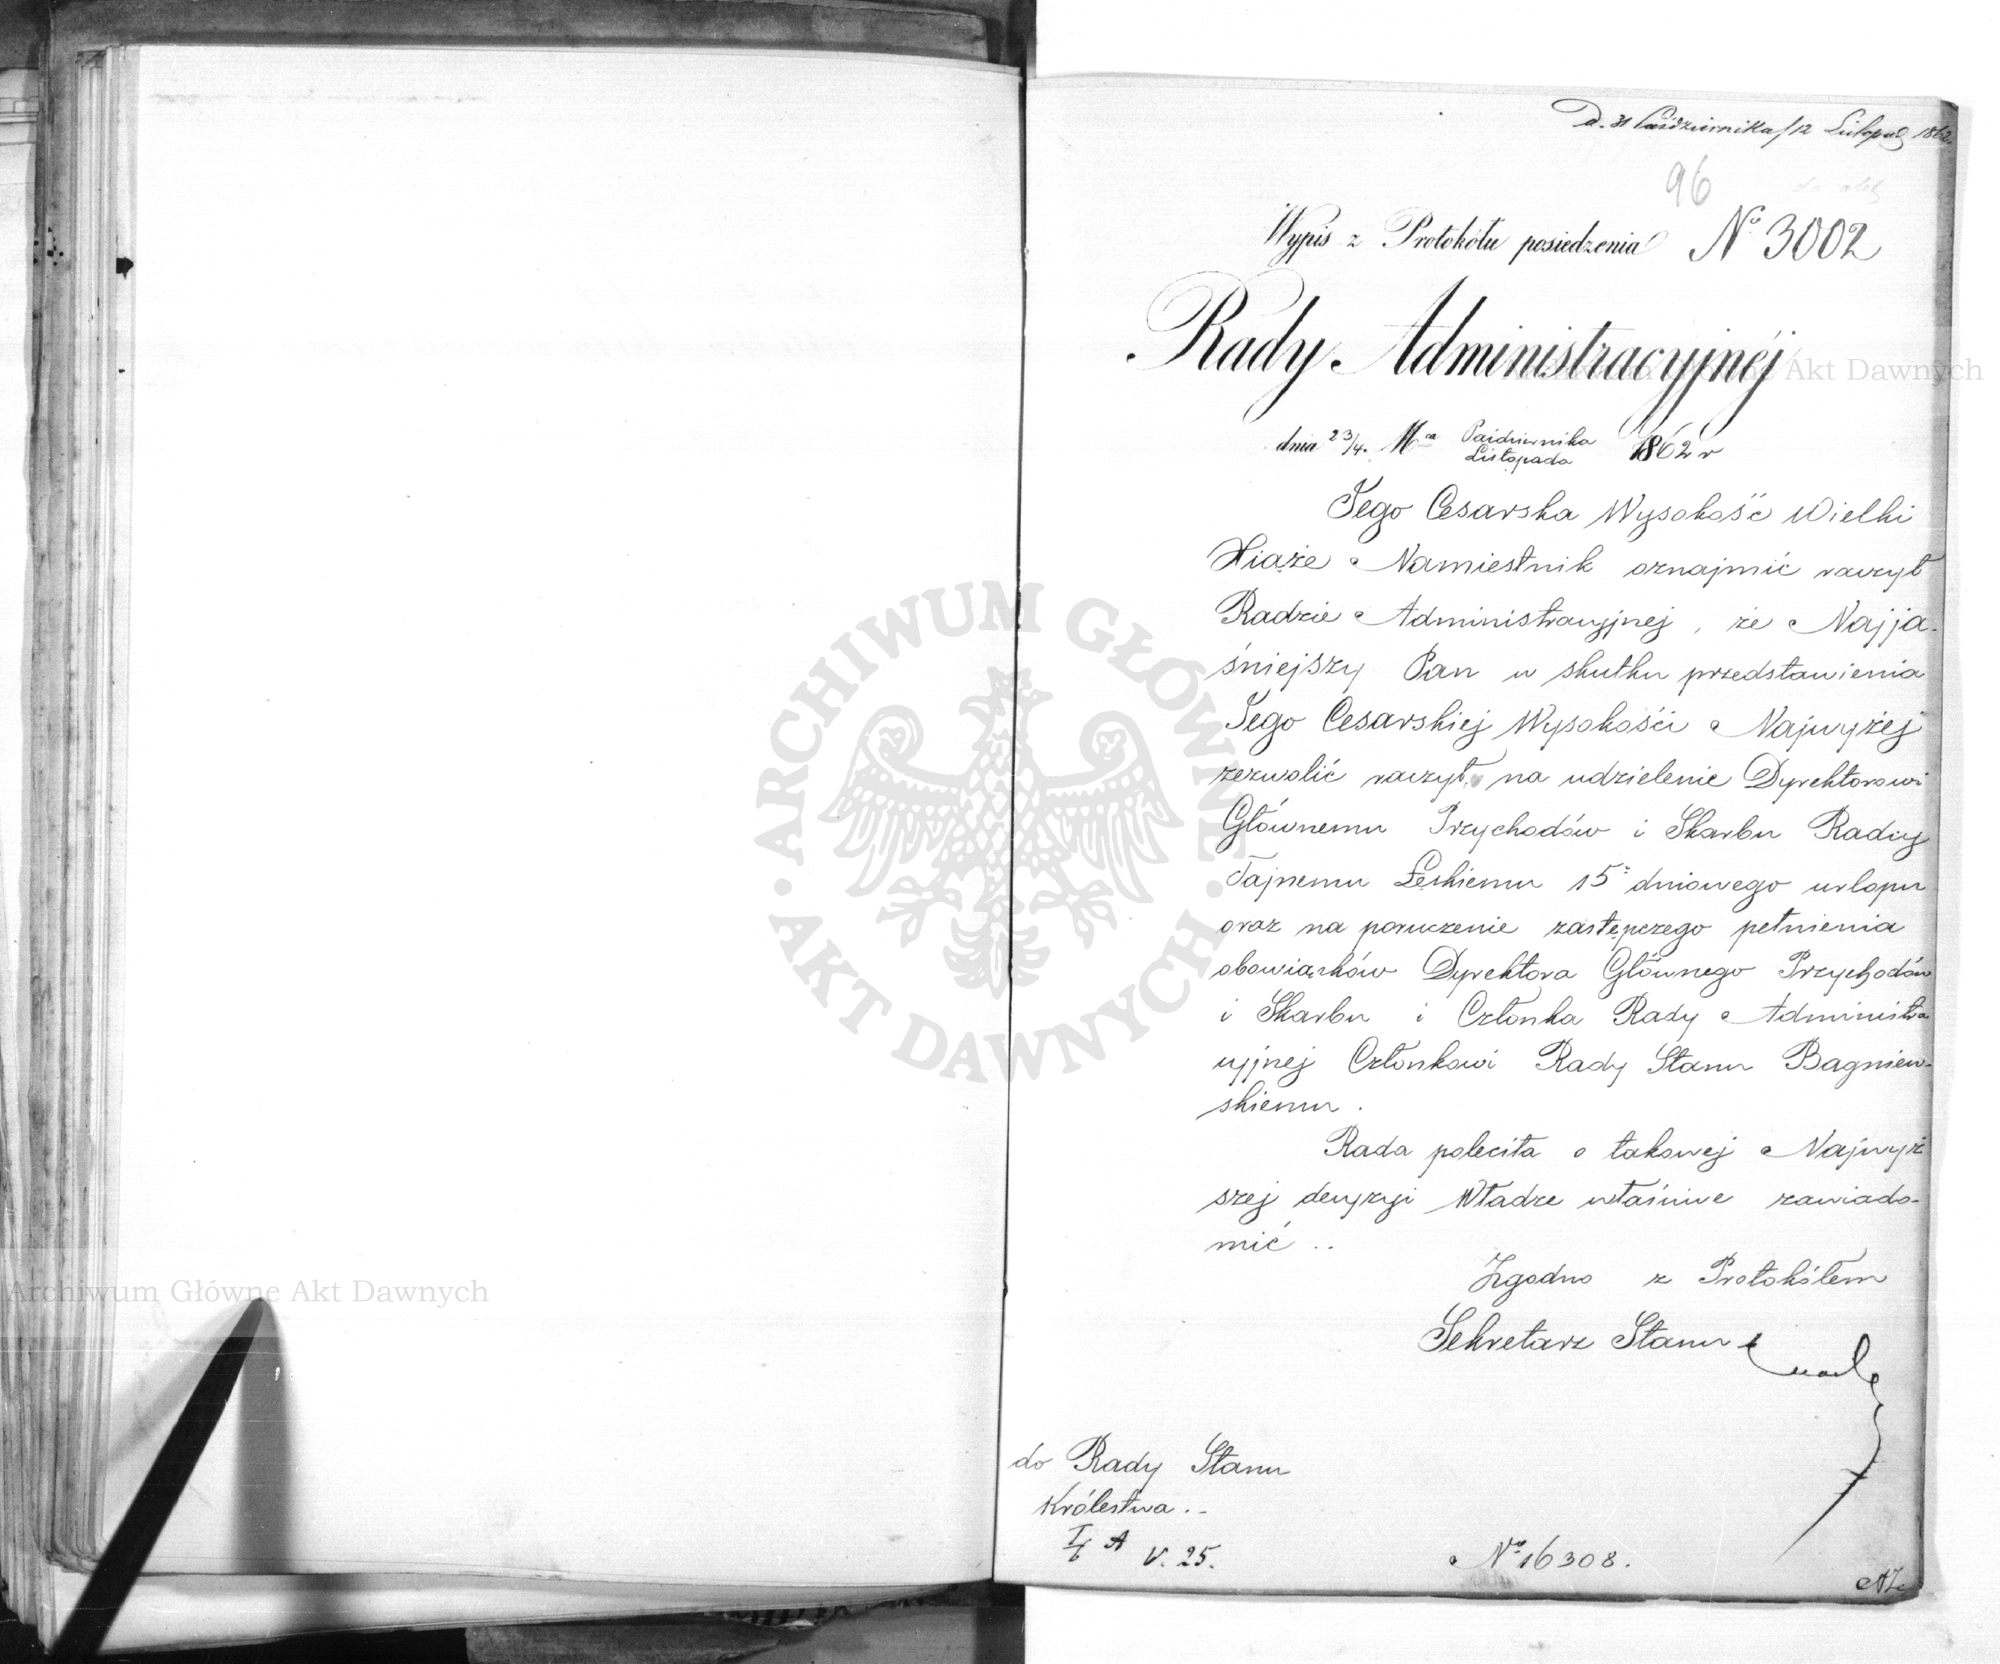 D. 31 Października/12 Listopad 1862.
96
do akt
Wypis z Protokółu posiedzenia No 3002
Rady Administracyjnéj
dnia 23/4. Mca Października
Listopada 1862 r
Jego Cesarska Wysokość Wielki
Xiąże Namiestnik oznajmić raczył
Radzie Administracyjnej, że Najja-
śniejszy Pan w skutku przedstawienia
Jego Cesarskiej Wysokości Najwyżej
zezwolić raczył, na udzielenie Dyrektorowi
Głównemu Przychodów i Skarbu Radcy
Tajnemu Łęskiemu 15 dniowego urlopu
oraz na poruczenie zastępczego pełnienia
obowiązków Dyrektora Głównego Przychodów
i Skarbu i Członka Rady Administra
cyjnej Członkowi Rady Stanu Bagniew-
skiemu.
Rada poleciła o takowej Najwyż
szej decyzyi Władze właściwe zawiado-
mić..
Zgodno z Protokółem
Sekretarz Stanu
do Rady Stanu
Królestwa..
I/6 A V. 25.
No 16308.
Archiwum Główne Akt Dawnych
Archiwum Główne Akt Dawnych
· ARCHIWUM GŁÓWNE · AKT DAWNYCH